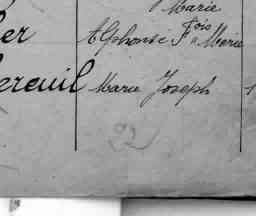 Marie
ler Alphonse Fois Marie
ereuil Marie Joseph 1
92